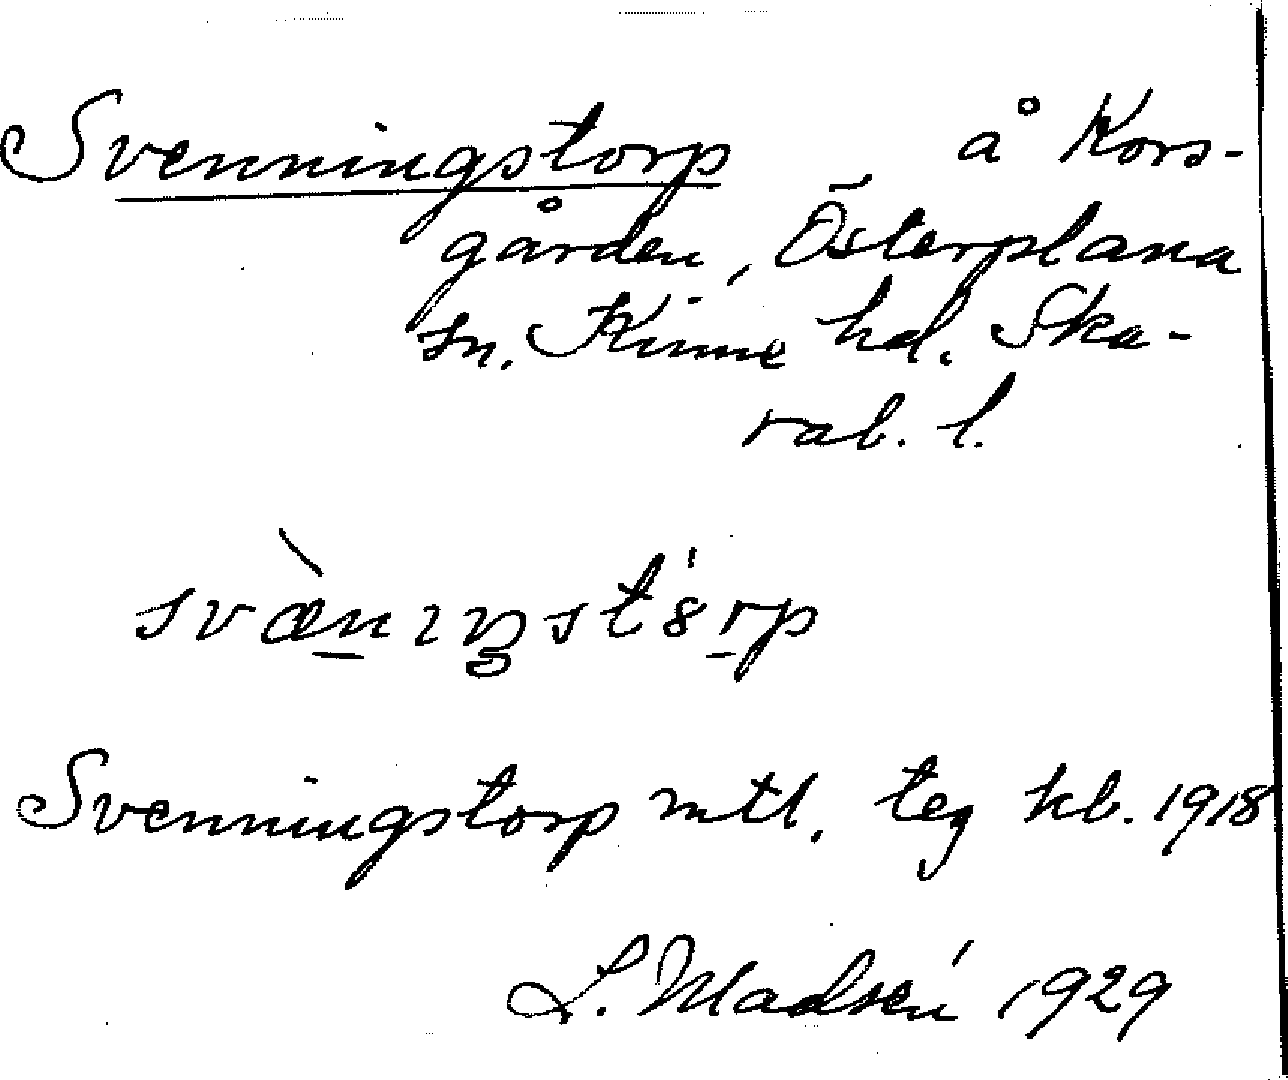 Svenningstorp å Kors-
gården, Österplana
sn. Kinne hd. Ska-
rab. l.
svæ̀nıŋst'8rp
Svenningstorp mtl. teg kb. 1918
L. Madsén 1929